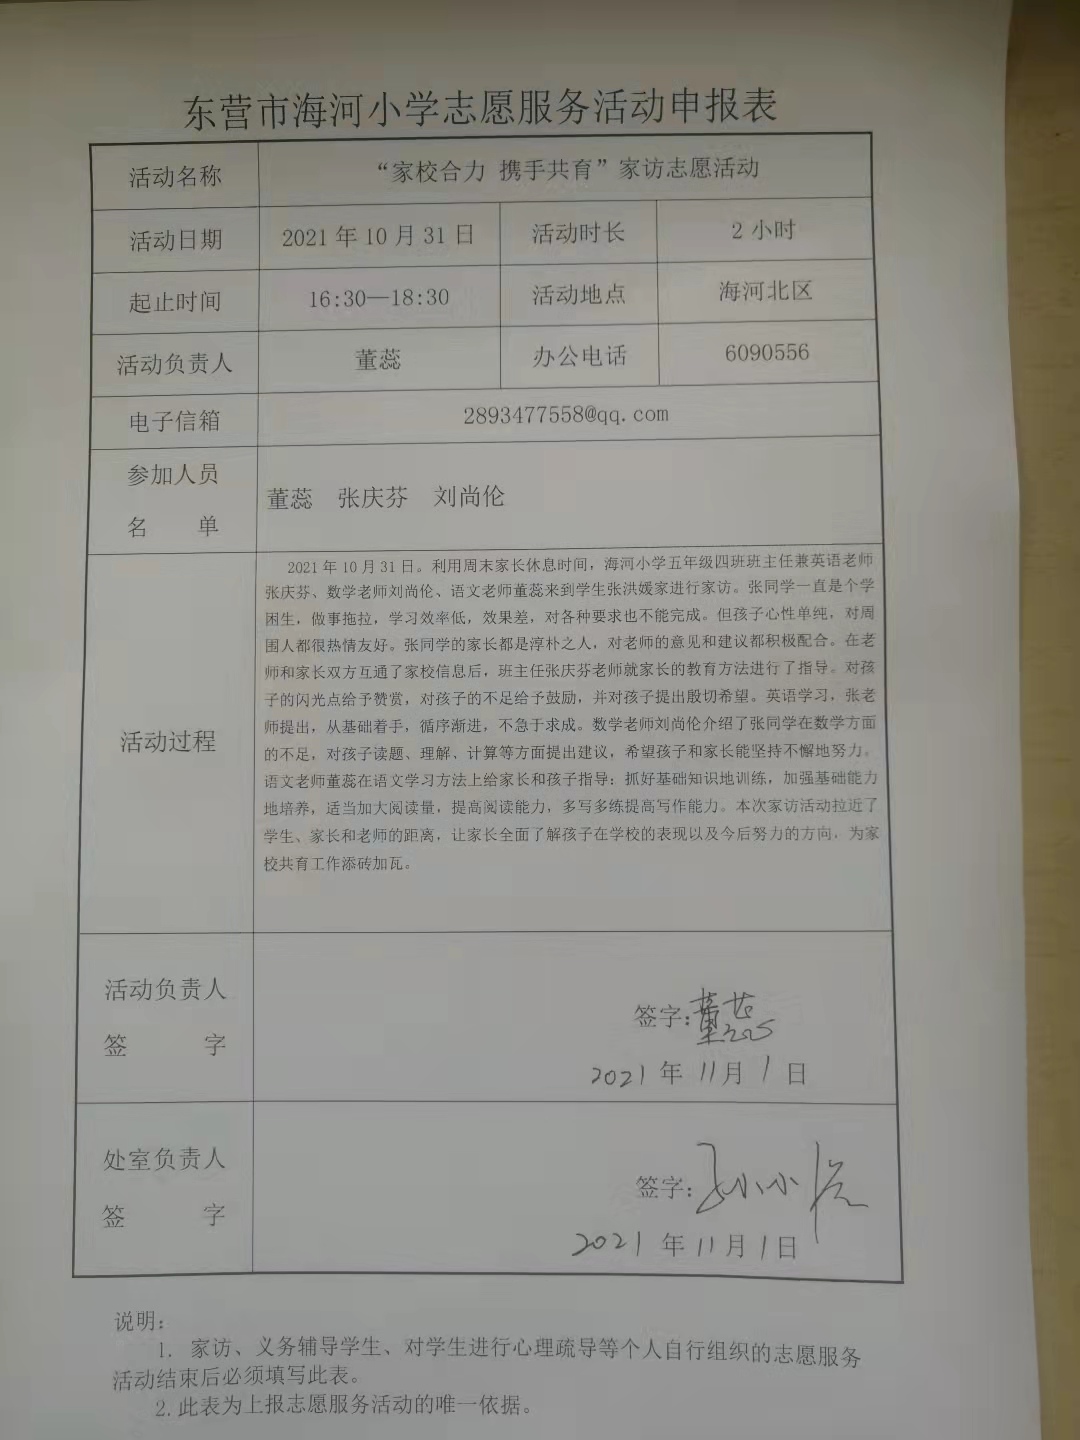 东营市海河小学志愿服务活动申报表
活动名称 “家校合力 携手共育”家访志愿活动
活动日期 2021 年 10 月 31 日 活动时长 2 小时
起止时间 16:30—18:30 活动地点 海河北区
活动负责人 董蕊 办公电话 6090556
电子信箱 2893477558@qq.com
参加人员
名 单
董蕊 张庆芬 刘尚伦
活动过程
2021 年 10 月 31 日。利用周末家长休息时间，海河小学五年级四班班主任兼英语老师
张庆芬、数学老师刘尚伦、语文老师董蕊来到学生张洪媛家进行家访。张同学一直是个学
困生，做事拖拉，学习效率低，效果差，对各种要求也不能完成。但孩子心性单纯，对周
围人都很热情友好。张同学的家长都是淳朴之人，对老师的意见和建议都积极配合。在老
师和家长双方互通了家校信息后，班主任张庆芬老师就家长的教育方法进行了指导。对孩
子的闪光点给予赞赏，对孩子的不足给予鼓励，并对孩子提出殷切希望。英语学习，张老
师提出，从基础着手，循序渐进，不急于求成。数学老师刘尚伦介绍了张同学在数学方面
的不足，对孩子读题、理解、计算等方面提出建议，希望孩子和家长能坚持不懈地努力。
语文老师董蕊在语文学习方法上给家长和孩子指导：抓好基础知识地训练，加强基础能力
地培养，适当加大阅读量，提高阅读能力，多写多练提高写作能力。本次家访活动拉近了
学生、家长和老师的距离，让家长全面了解孩子在学校的表现以及今后努力的方向，为家
校共育工作添砖加瓦。
活动负责人
签 字
签字：董蕊
2021 年 11 月 1 日
处室负责人
签 字
签字：
2021 年 11 月 1 日
说明：
1. 家访、义务辅导学生、对学生进行心理疏导等个人自行组织的志愿服务
活动结束后必须填写此表。
2.此表为上报志愿服务活动的唯一依据。